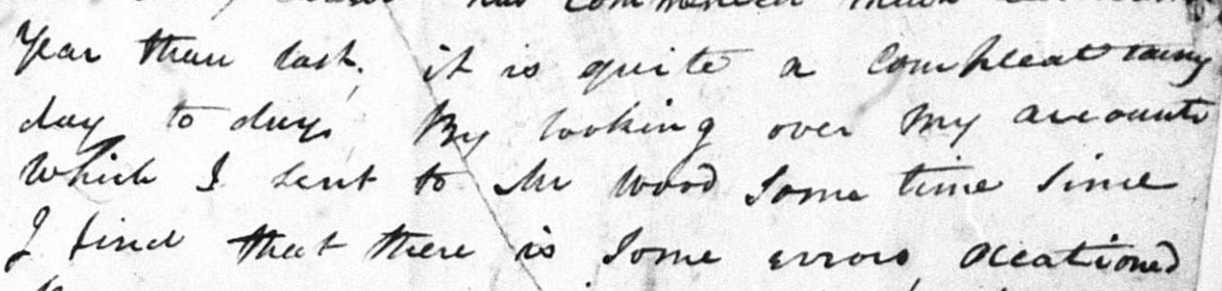 has commenced much
Year than last, it is quite a compleat rainy
day to day. By looking over my accounts
which I sent to Mr Wood some time since
I find that there is some errors ocationed